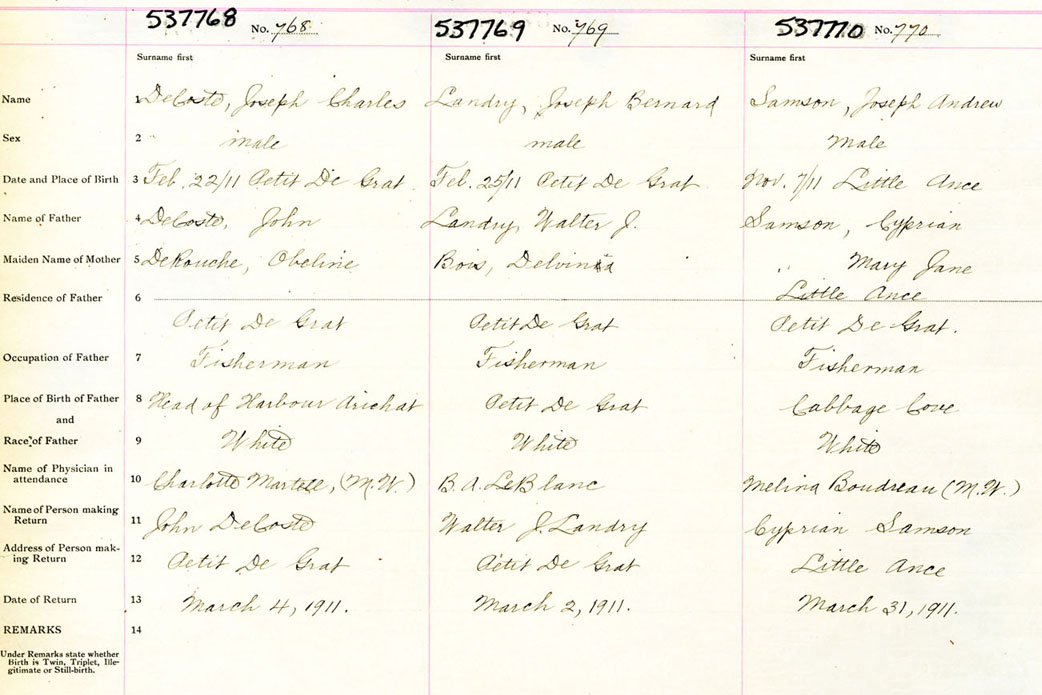 537768 No. 768 537769 No. 769 537770 No. 770
Surname first Surname first Surname first
Name 1 DeCoste, Joseph Charles Landry, Joseph Bernard Samson, Joseph Andrew
Sex 2 male male Male
Date and Place of Birth 3 Feb. 22/11 Petit De Grat Feb. 25/11 Petit De Grat Nov. 7/11 Little Ance
Name of Father 4 DeCoste, John Landry, Walter J. Samson, Cyprian
Maiden Name of Mother 5 DeRouche, Obeline Bois, Delvina " Mary Jane
Residence of Father 6 Little Ance
Petit De Grat Petit De Grat Petit De Grat.
Occupation of Father 7 Fisherman Fisherman Fisherman
Place of Birth of Father 8 Head of Harbour Arichat Petit De Grat Cabbage Cove
and
Race of Father 9 White White White
Name of Physician in
attendance 10 Charlotte Martell, (M.W.) B. A. LeBlanc Melina Boudreau (M.W.)
Name of Person making
Return 11 John DeCoste Walter J. Landry Cyprian Samson
Address of Person mak-
ing Return 12 Petit De Grat Petit De Grat Little Ance
Date of Return 13 March 4, 1911. March 2, 1911. March 31, 1911.
REMARKS 14
Under Remarks state whether
Birth is Twin, Triplet, Ille-
gitimate or Still-birth.